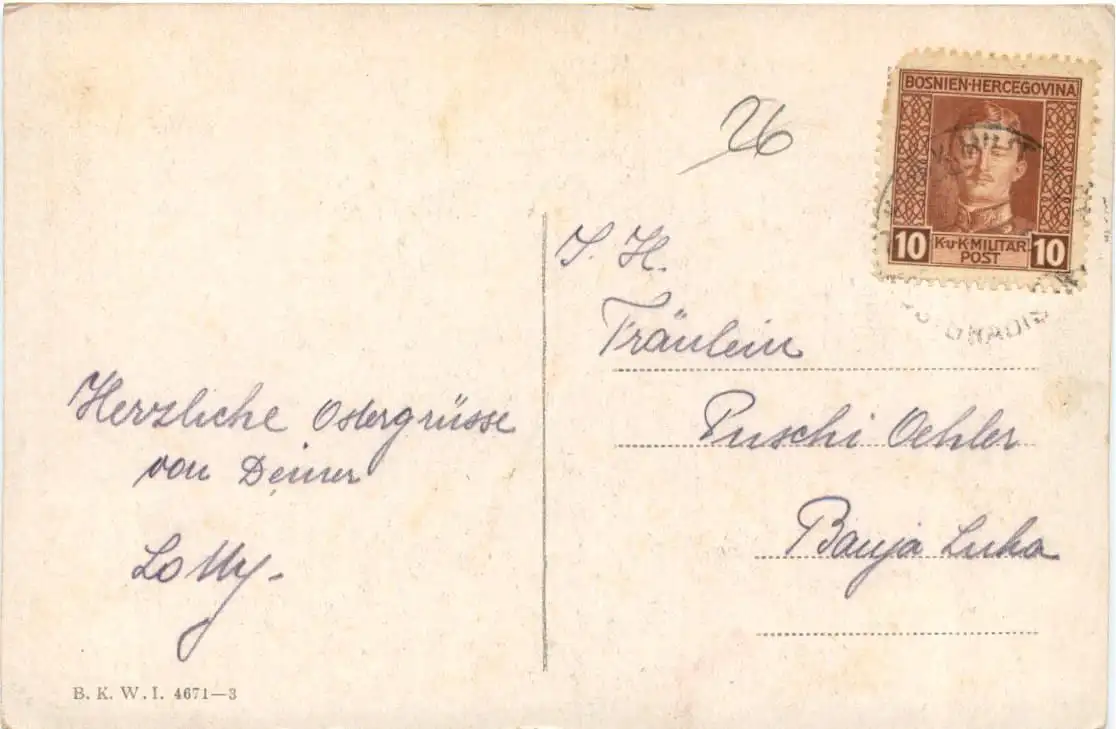 Herzliche Ostergrüsse
von Deiner
Lolly.
B. K. W. I. 4671—3
26
BOSNIEN-HERCEGOVINA
10 K.u.K. MILITÄR POST 10
Fräulein
Puschi Oehler
Banja Luka